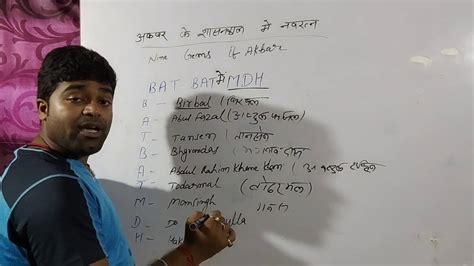 अकबर के शासनकाल में नवरत्न
Nine Gems of Akbar
BAT BAT में MDH
B - Birbal (बिरबल)
A - Abul Fazal (अबुल फजल)
T - Tansen (तानसेन)
B - Bhgwndas (भगवान दास)
A - Abdul Rahim Khane Khan
T - Todarmal (टोडरमल)
M - Mansingh
D - ulla
H -